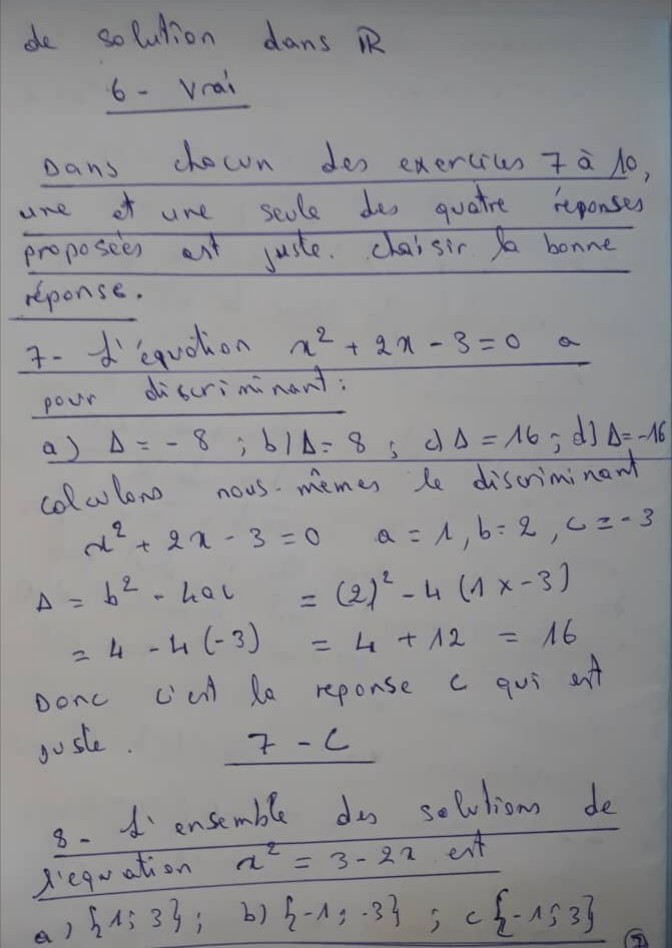 de solution dans ℝ
6 - Vrai
Dans chacun des exercices 7 à 10,
une et une seule des quatre réponses
proposées est juste. choisir la bonne
réponse.
7- L'équation x² + 2x - 3 = 0 a
pour discriminant :
a) Δ = - 8 ; b) Δ = 8 ; c) Δ = 16 ; d) Δ = -16
calculons nous-mêmes le discriminant
x² + 2x - 3 = 0 a = 1, b = 2, c = - 3
Δ = b² - 4ac = (2)² - 4 (1 x -3)
= 4 - 4 (-3) = 4 + 12 = 16
Donc c'est la reponse c qui est
juste. 7 - C
8- L'ensemble des solutions de
l'equation x² = 3 - 2x est
a) {1; 3} ; b) {-1; -3} ; c {-1; 3}